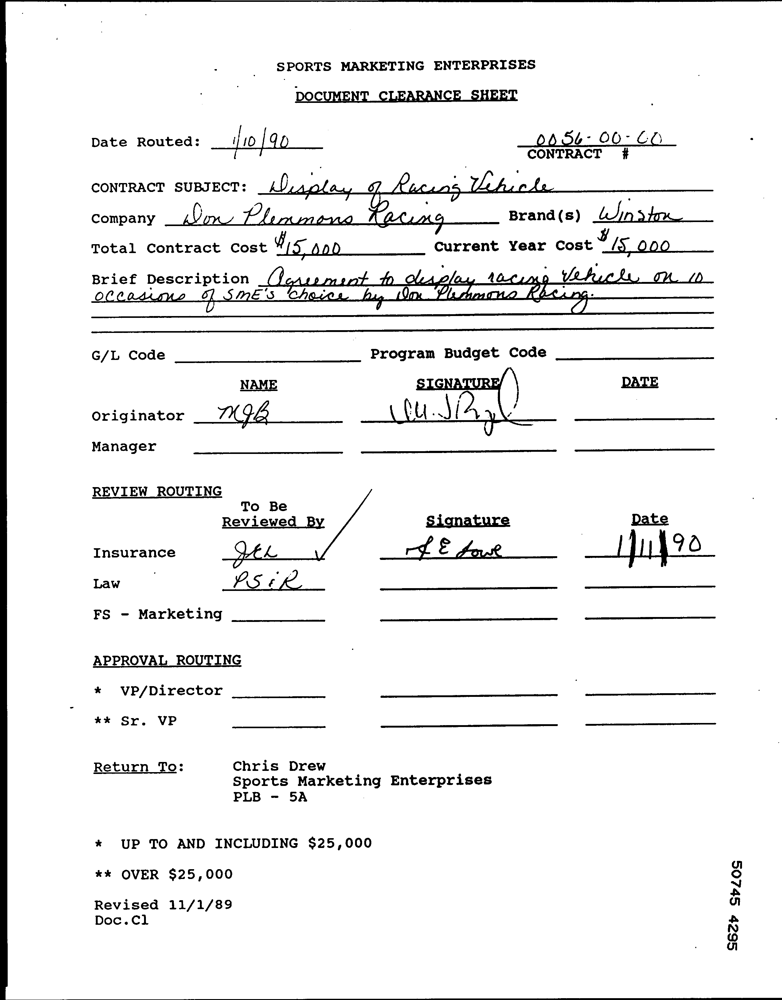 SPORTS MARKETING ENTERPRISES
DOCUMENT CLEARANCE SHEET
Date Routed: 1/10/90 0056-00-00
CONTRACT #
CONTRACT SUBJECT: Display of Racing Vehicle
Company Don Plemmons Racing Brand(s) Winston
Total Contract Cost $15,000 Current Year Cost $15,000
Brief Description Agreement to display racing vehicle on 10
occasions of SME's choice by Don Plemmons Racing.
G/L Code Program Budget Code
NAME SIGNATURE DATE
Originator MJB
Manager
REVIEW ROUTING
To Be
Reviewed By Signature Date
Insurance JEL ✓ J E Lowe 1/11/90
Law PSiR
FS - Marketing
APPROVAL ROUTING
* VP/Director
** Sr. VP
Return To: Chris Drew
Sports Marketing Enterprises
PLB - 5A
* UP TO AND INCLUDING $25,000
** OVER $25,000
Revised 11/1/89
Doc.Cl
50745 4295